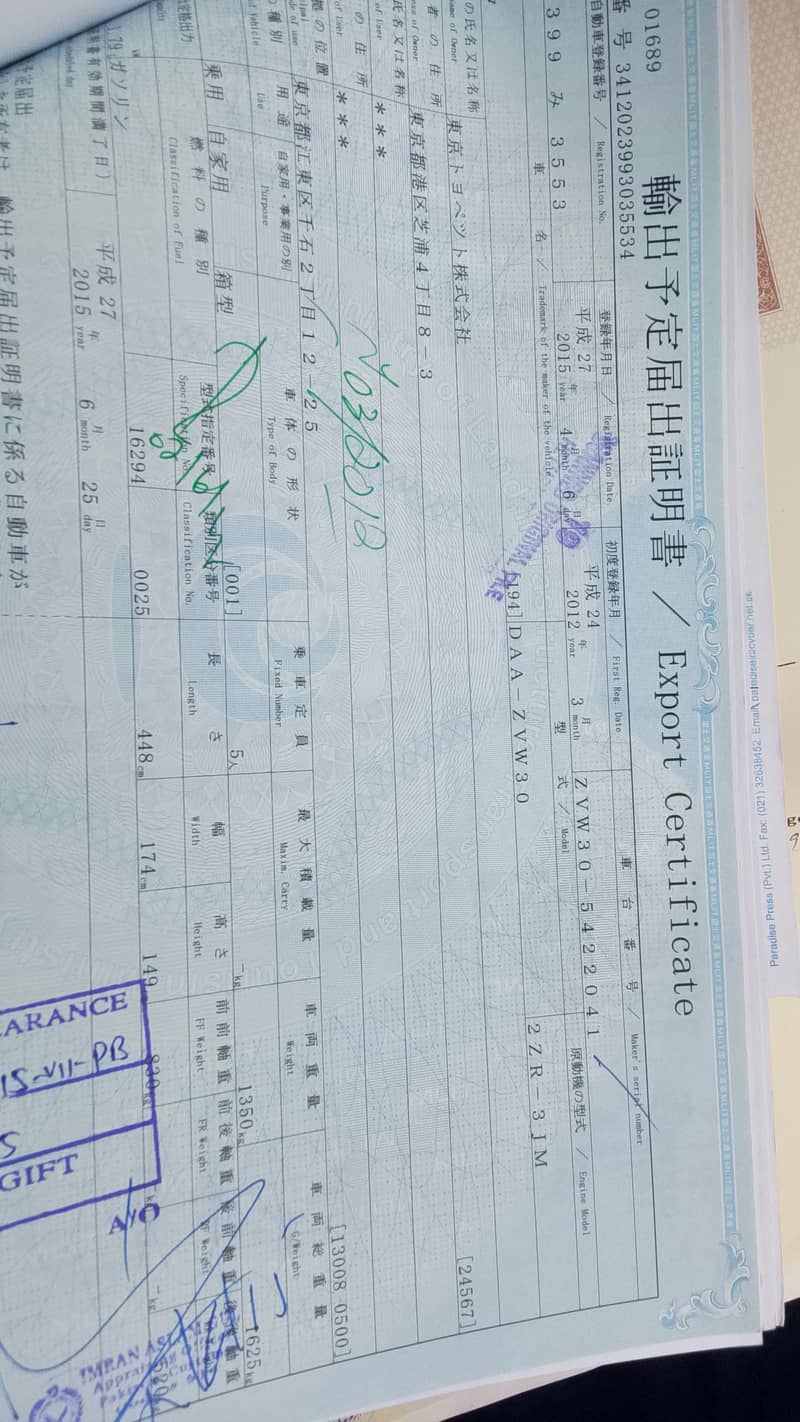 01689
輸出予定届出証明書 / Export Certificate
番号 3412023993035534
自動車登録番号 / Registration No.
登録年月日 / Registration Date
初度登録年月 / First Reg. Date
車台番号 / Maker's serial number
399 み 3553
平成 27 年 4 月 6 日
2015 year 4 month 6 day
平成 24 年 3 月
2012 year 3 month
ZVW30-5422041
車名 / Trademark of the maker of the vehicle
型式 / Model
原動機の型式 / Engine Model
[194] DAA-ZVW30
2ZR-3JM
の氏名又は名称
Name of Owner
東京トヨペット株式会社
[24567]
者の住所
東京都港区芝浦4丁目8-3
[13008 0500]
氏名又は名称
of User
***
の住所
of User
***
拠の位置
東京都江東区千石2丁目12-25
No3/2012
の種別
of Vehicle
用途
Use
自家用・事業用の別
Purpose
車体の形状
Type of Body
乗車定員
Fixed Number
最大積載量
Maxim. Carry
車両重量
Weight
車両総重量
G/Weight
乗用
自家用
箱型
[001]
5人
- kg
1350 kg
1625 kg
定格出力
燃料の種別
Classification of Fuel
型式指定番号
Specification No.
類別区分番号
Classification No.
長さ
Length
幅
Width
高さ
Height
前前軸重
FF Weight
前後軸重
FR Weight
後前軸重
RF Weight
後後軸重
1.79
ガソリン
16294
0025
448 cm
174 cm
149 cm
830 kg
- kg
- kg
有効期間満了日)
平成 27 年 6 月 25 日
2015 year 6 month 25 day
輸出予定届出証明書に係る自動車が
ARANCE
GIFT
A/C
Paradise Press (Pvt.) Ltd. Fax: (021) 32638452